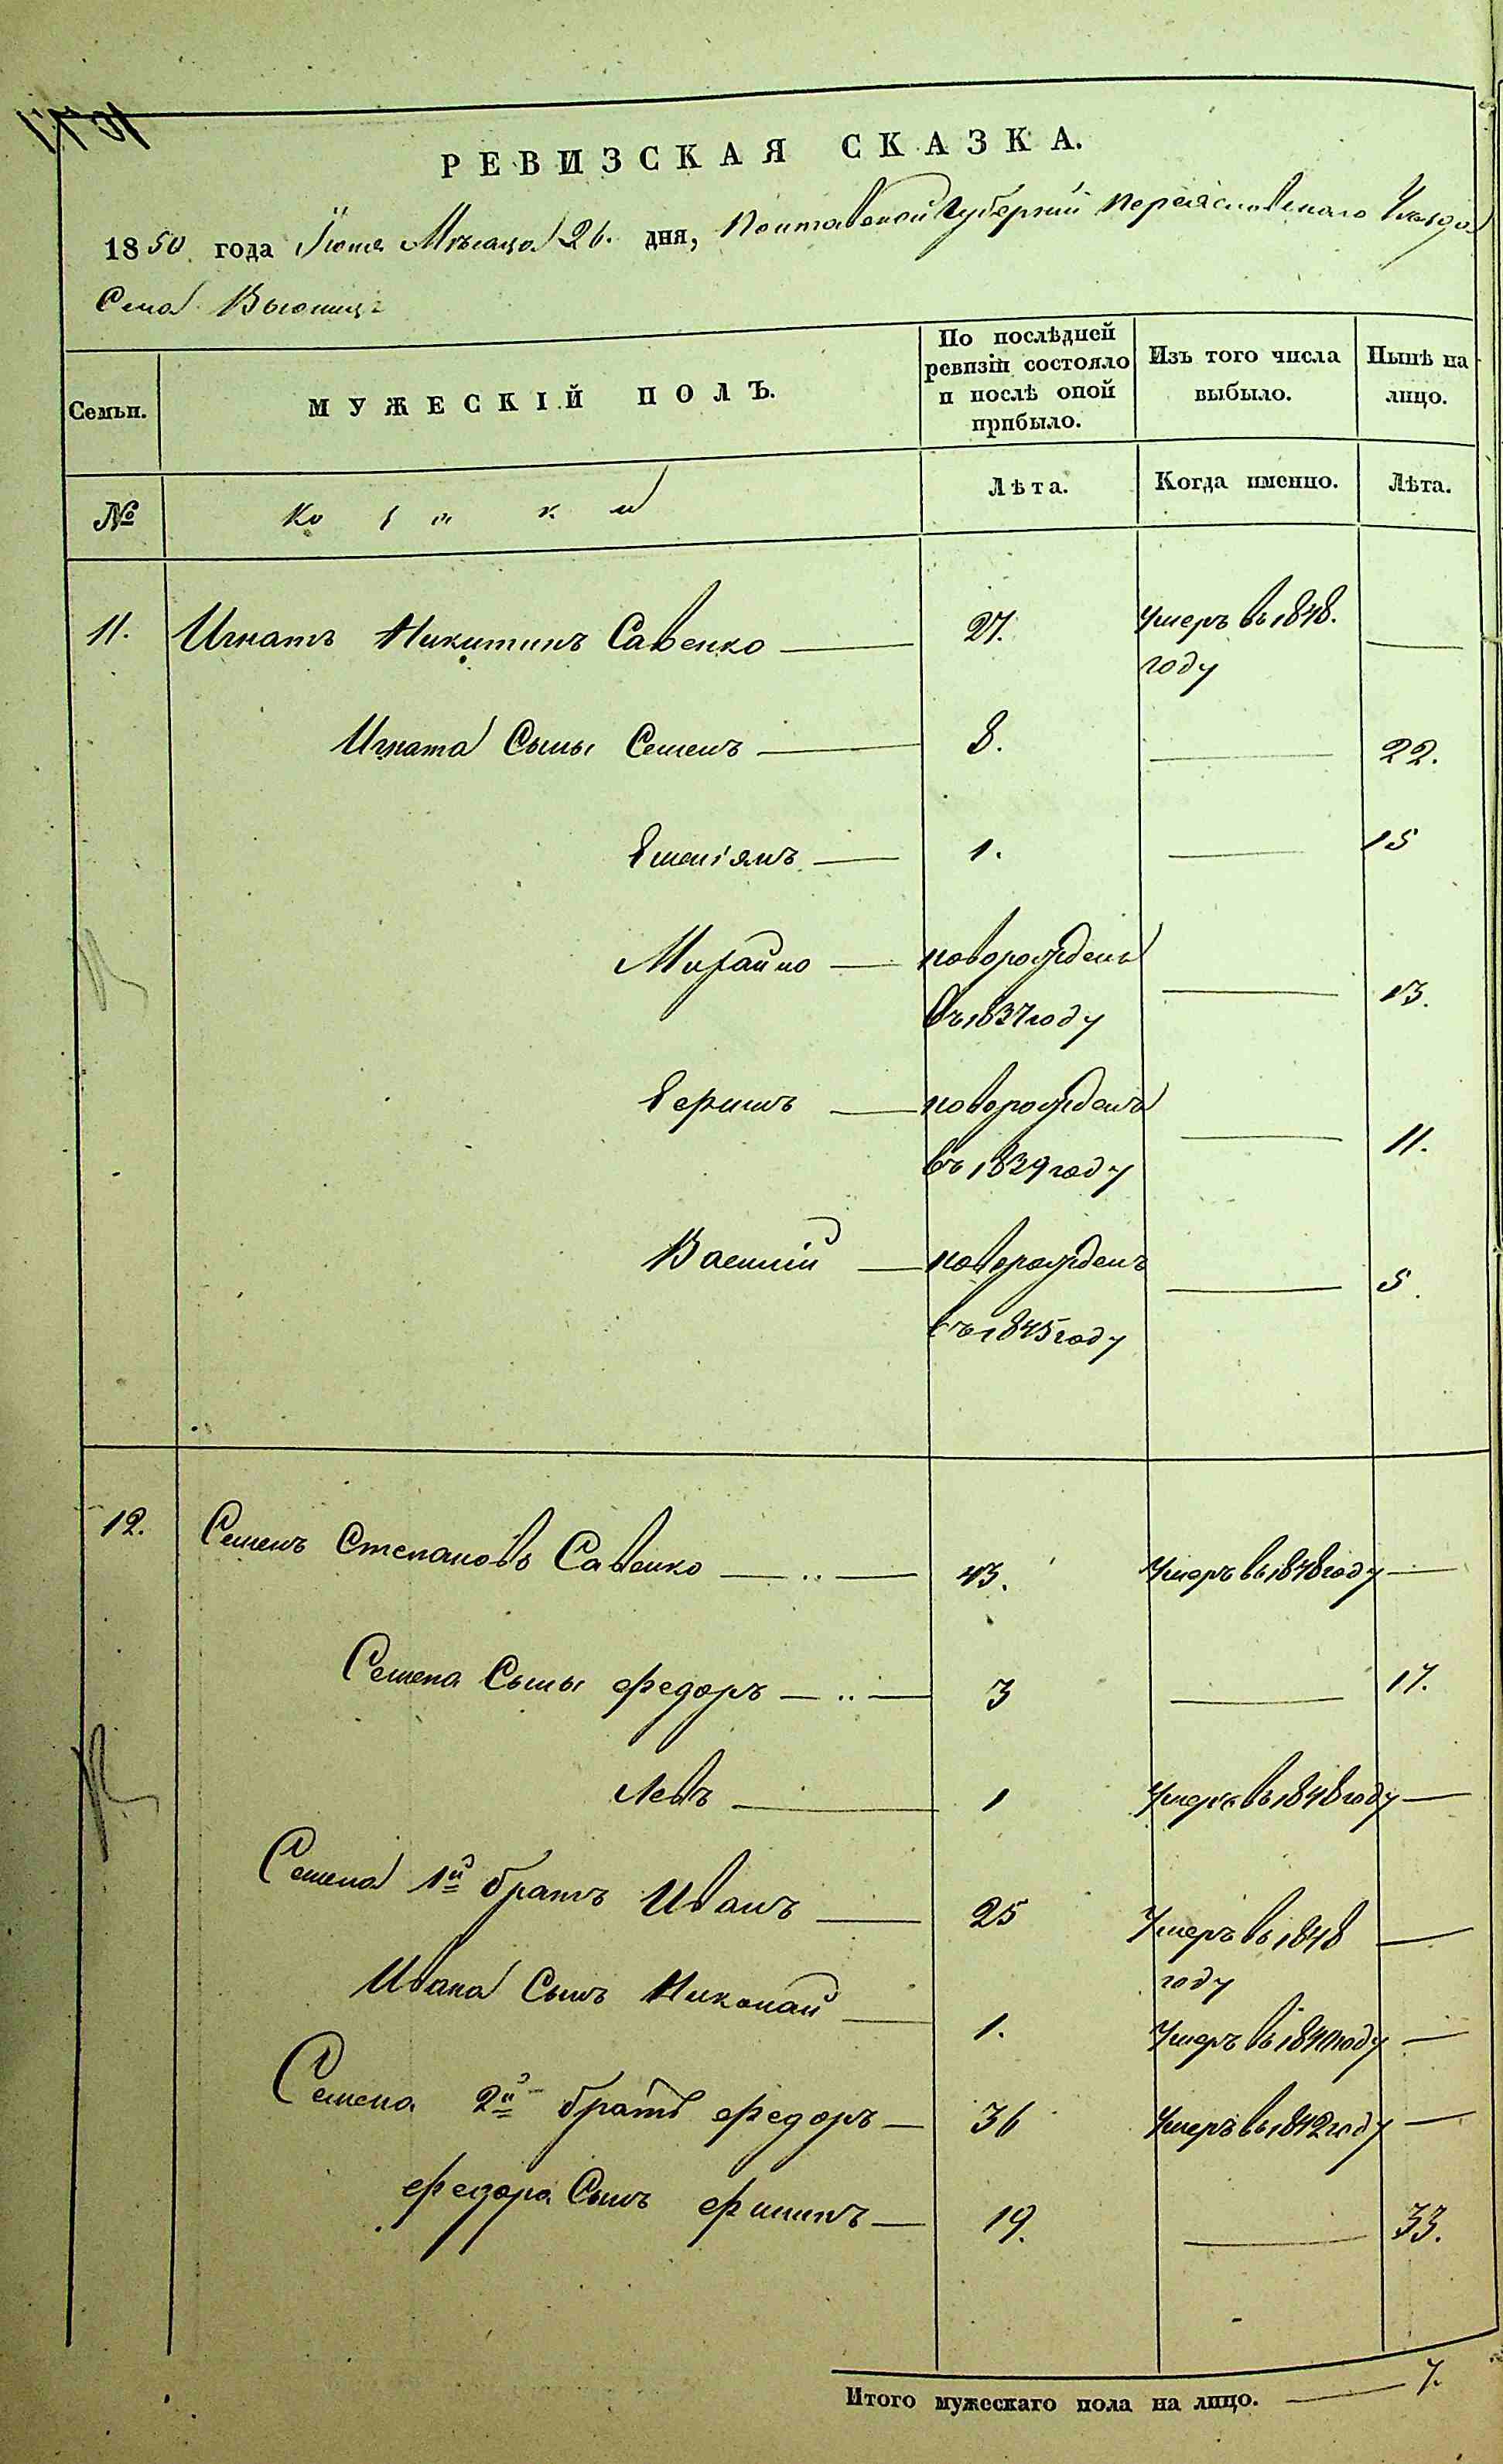 РЕВИЗСКАЯ СКАЗКА.
1850 года Іюня Мѣсяца 26. дня, Полтавской Губерніи Переяславскаго Уѣзда
Села Вьюнищъ
Семьи.
МУЖЕСКІЙ ПОЛЪ.
По послѣдней ревизіи состояло и послѣ оной прибыло.
Изъ того числа выбыло.
Нынѣ на лицо.
№ Козаки Лѣта. Когда именно. Лѣта.
11. Игнатъ Никитинъ Савенко — 27. Умеръ въ 1848. —
году
Игната Сыны Семенъ — 8. — 22.
Емеліянъ — 1. — 15
Михайло — новорожденъ
въ 1837 году — 13.
Ефимъ — новорожденъ
въ 1839 году — 11.
Василій — новорожденъ
въ 1845 году — 5.
12. Семенъ Степановъ Савенко — 43. Умеръ въ 1848 году —
Семена Сыны Федоръ — 3 — 17.
Левъ — 1 Умеръ въ 1848 году —
Семена 1й братъ Иванъ — 25 Умеръ въ 1848 —
году
Ивана Сынъ Николай — 1. Умеръ въ году —
Семена 2й братъ Федоръ — 36 Умеръ въ 1842 году —
Федора Сынъ Филипъ — 19. — 33.
Итого мужескаго пола на лицо. — 7.